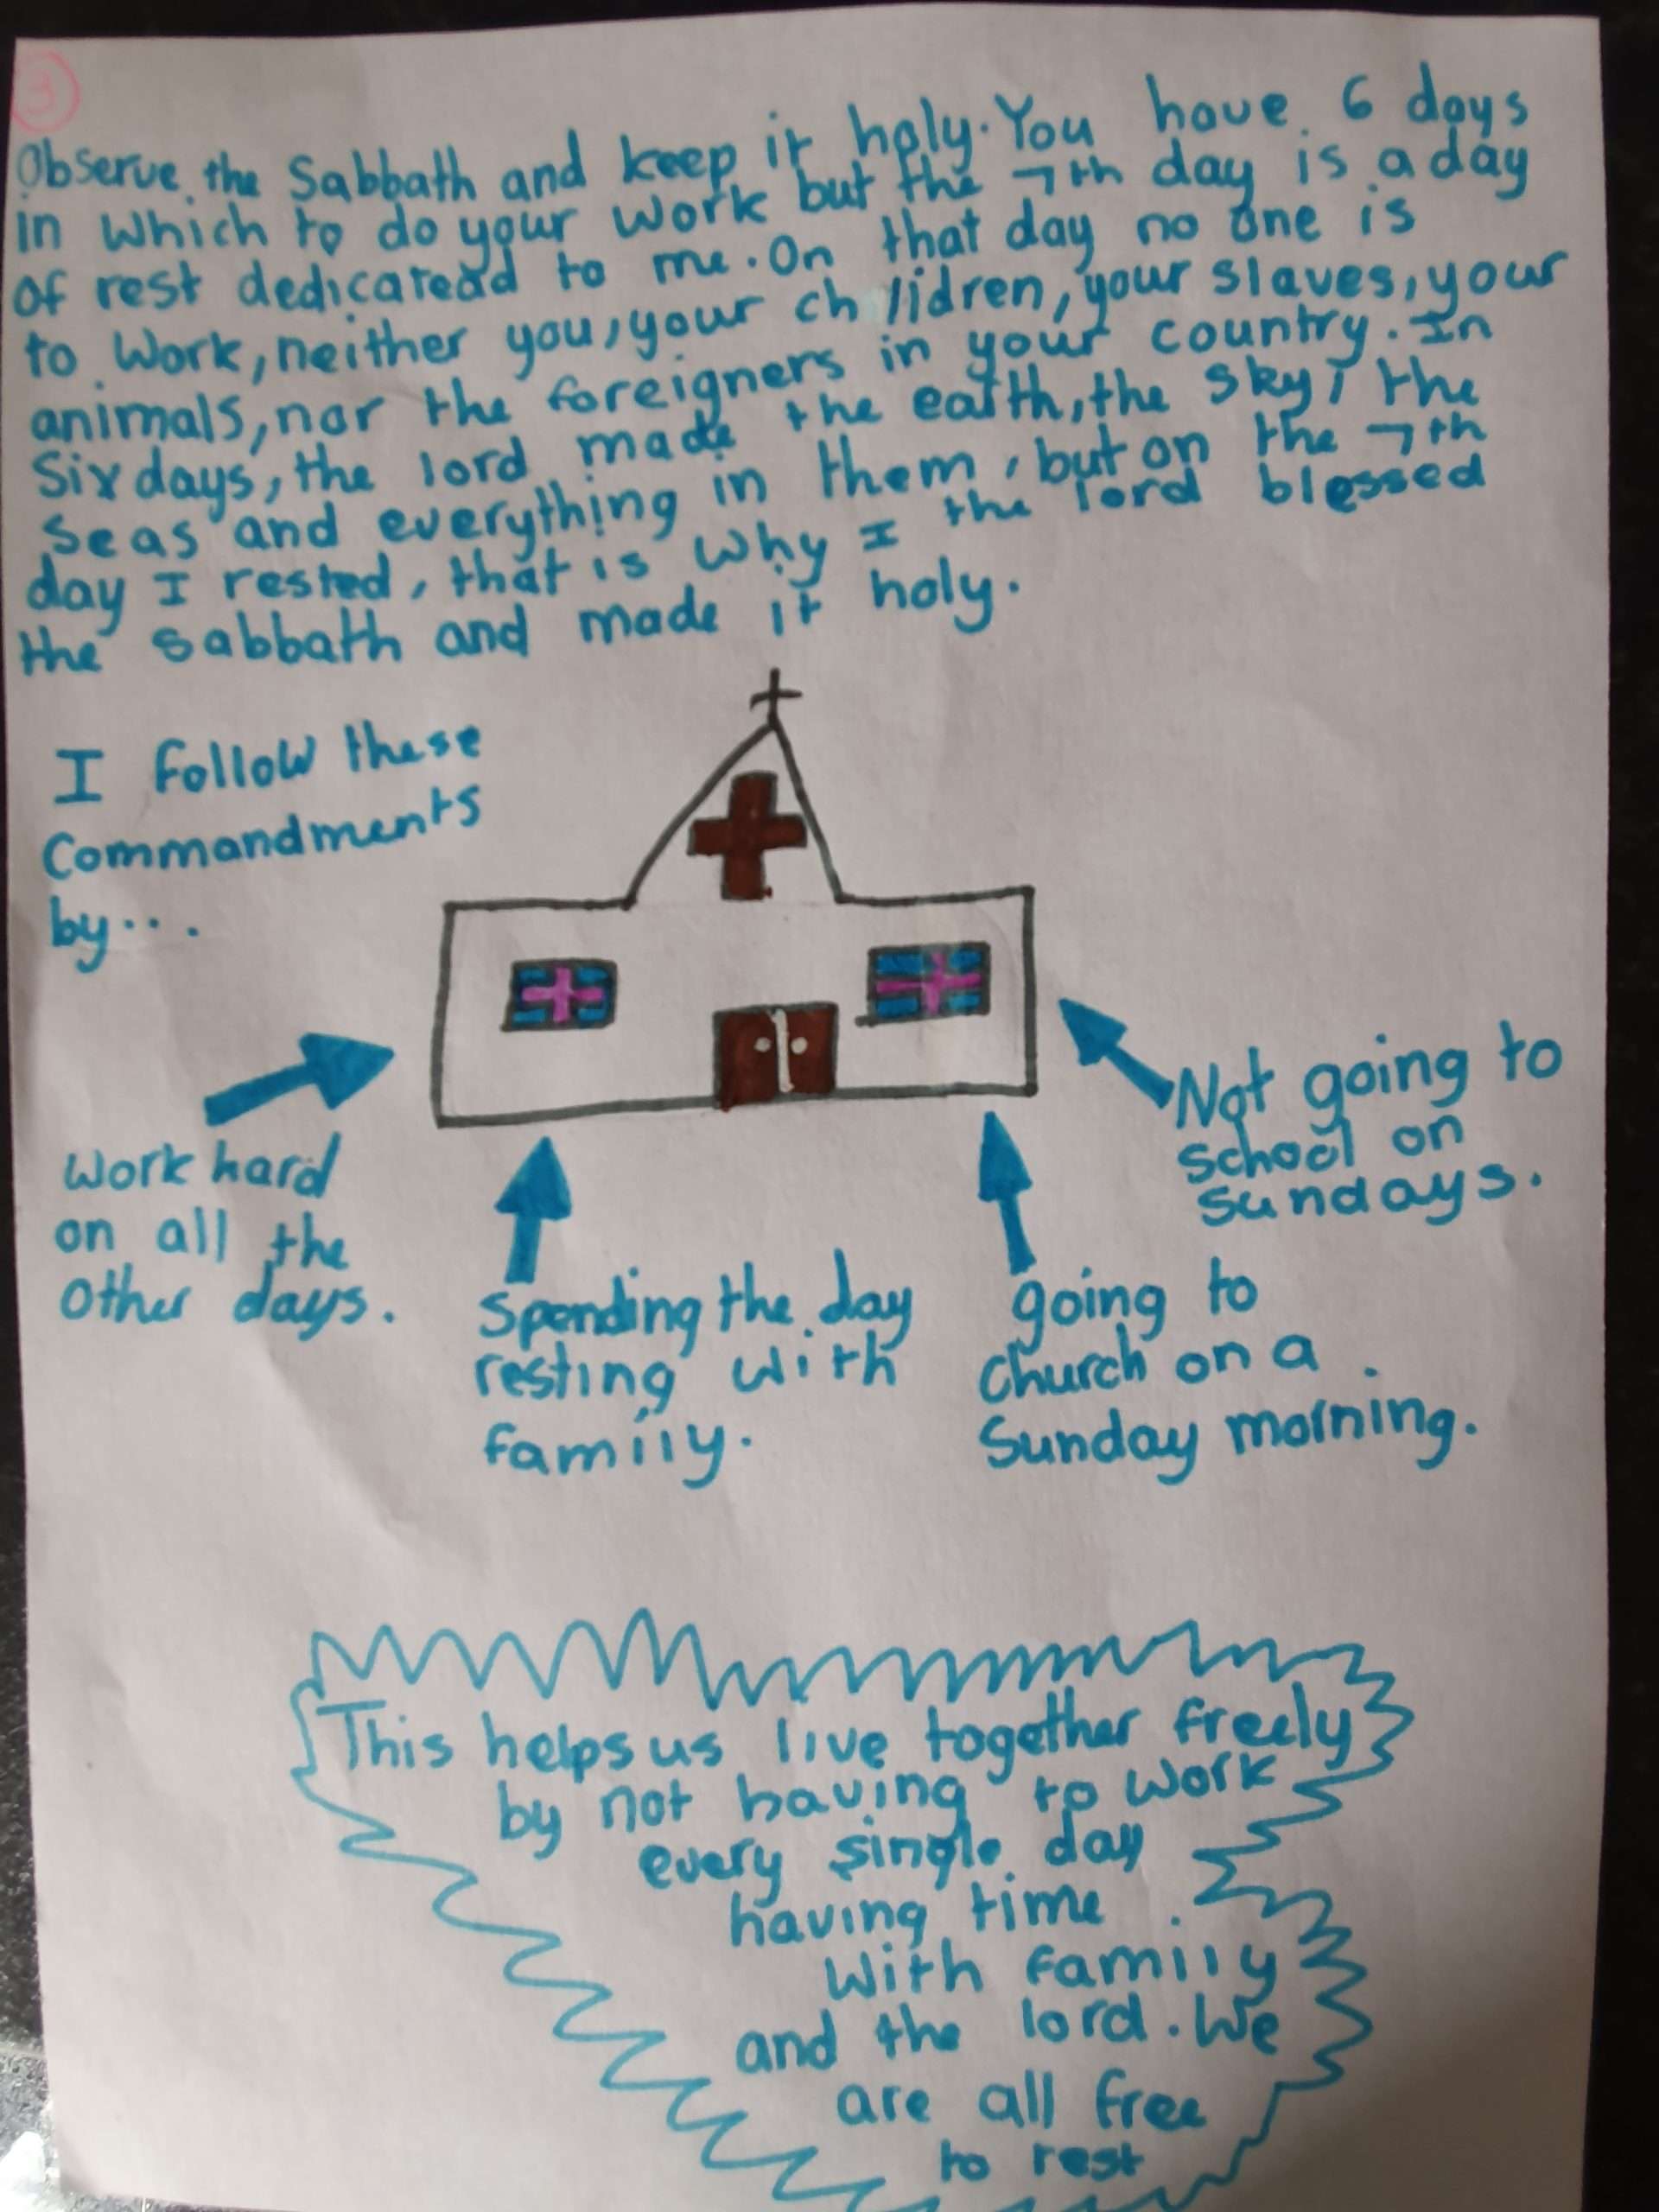 3
Observe the Sabbath and keep it holy. You have 6 days
in which to do your work but the 7th day is a day
of rest dedicatead to me. On that day no one is
to work, neither you, your ch lidren, your slaves, your
animals, nor the foreigners in your country. In
Six days, the lord made the earth, the sky, the
seas and everything in them, but on the 7th
day I rested, that is why I the lord blessed
the sabbath and made it holy.
I follow these
Commandments
by...
Work hard
on all the
other days.
Spending the day
resting with
family.
going to
church on a
Sunday morning.
Not going to
school on
Sundays.
This helps us live together freely
by not having to work
every single day
having time
with family
and the lord. We
are all free
to rest